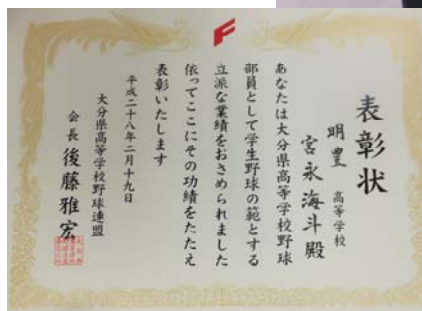 表彰状
明豊 高等学校
宮永海斗殿
あなたは大分県高等学校野球
部員として学生野球の範とする
立派な業績をおさめられました
依ってここにその功績をたたえ
表彰いたします
平成二十八年二月十九日
大分県高等学校野球連盟
会長 後藤雅宏